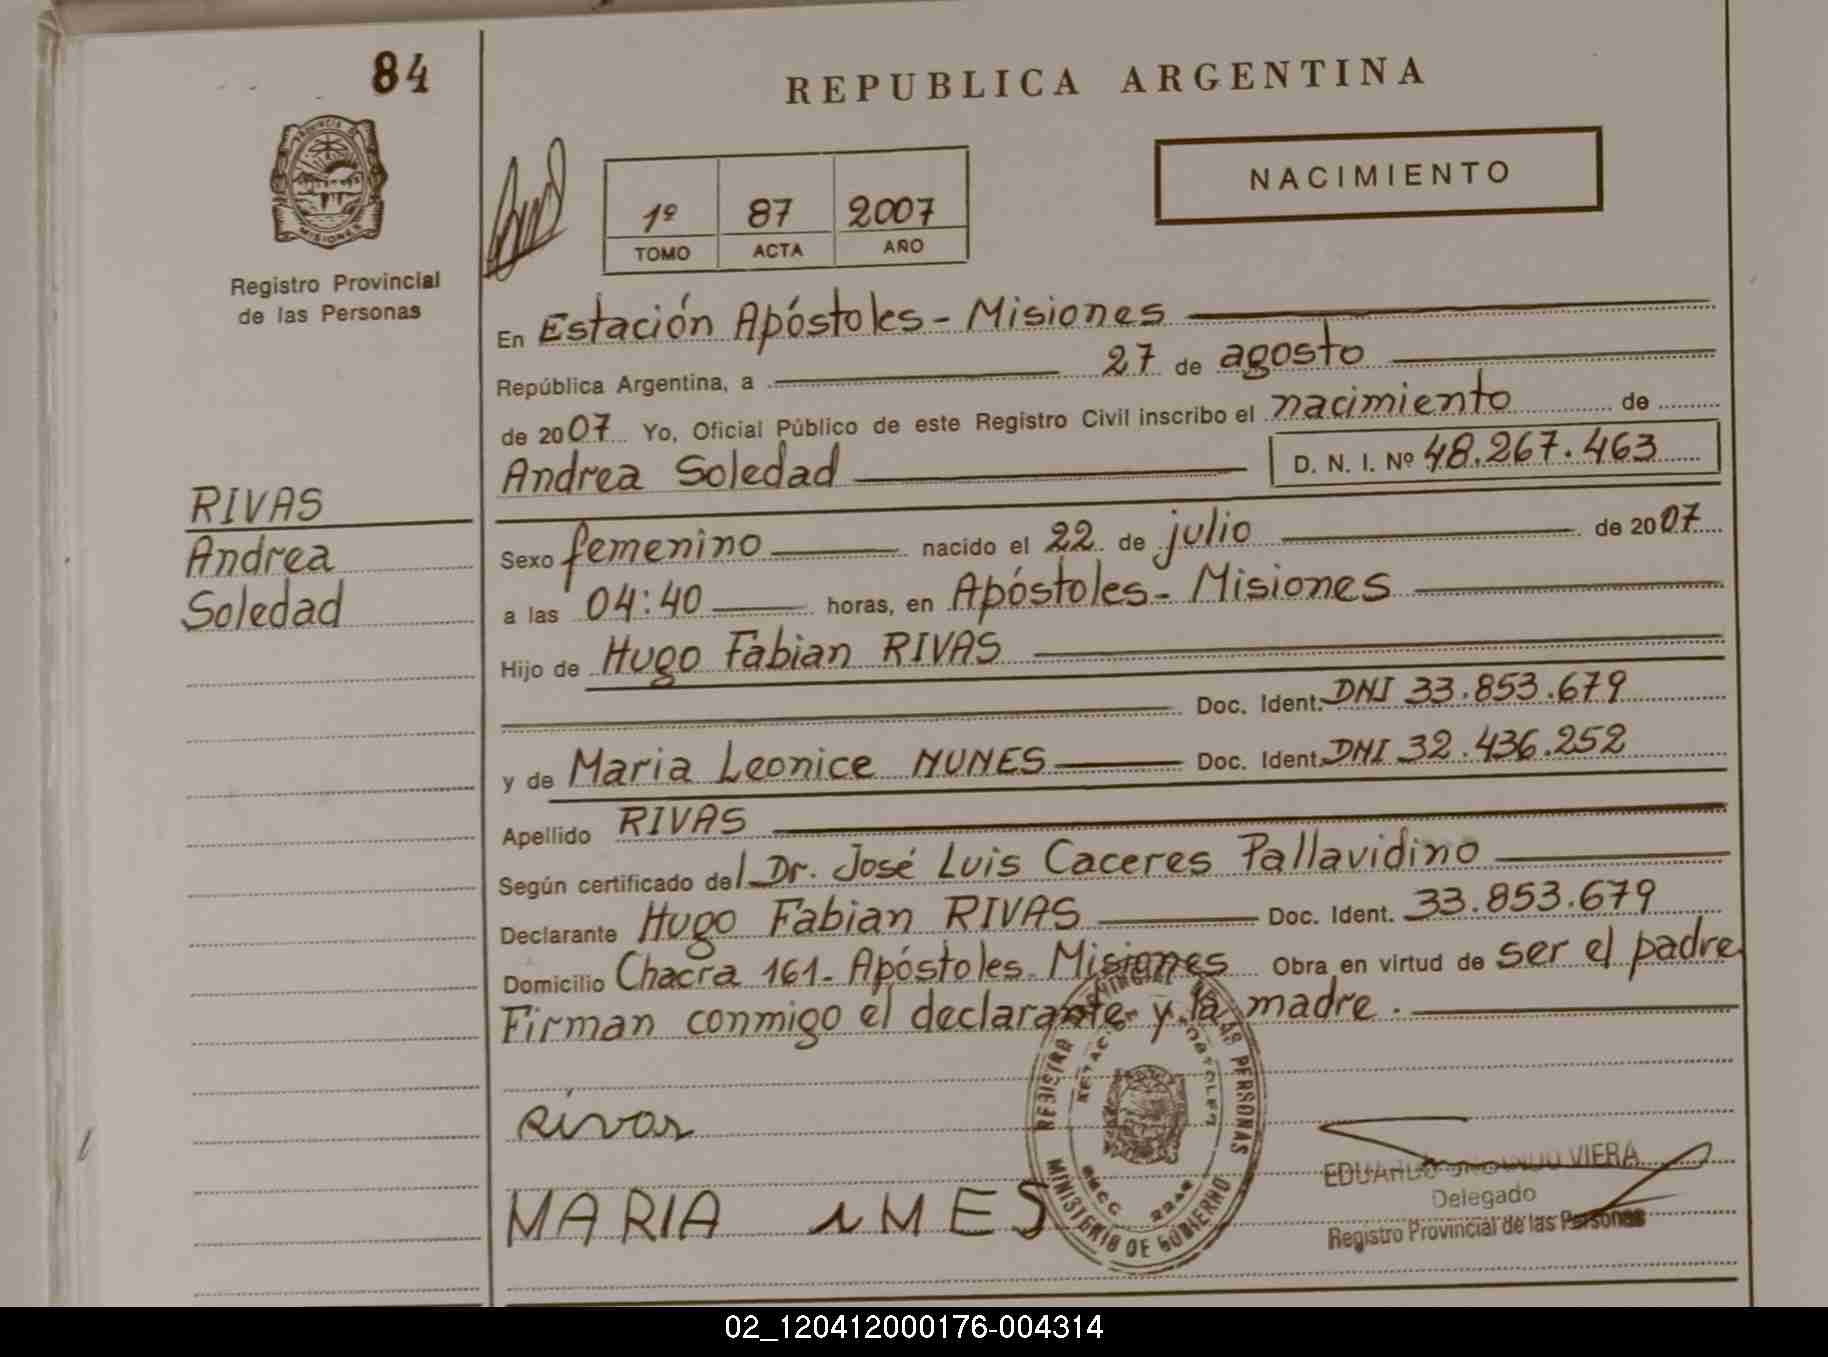 84
REPUBLICA ARGENTINA
NACIMIENTO
PROVINCIA DE
MISIONES
Registro Provincial
de las Personas
1º 87 2007
TOMO ACTA AÑO
En Estación Apóstoles - Misiones
República Argentina, a 27 de agosto
de 2007 Yo, Oficial Público de este Registro Civil inscribo el nacimiento de
Andrea Soledad D. N. I. Nº 48.267.463
RIVAS
Andrea
Soledad
Sexo femenino nacido el 22 de julio de 2007
a las 04:40 horas, en Apóstoles - Misiones
Hijo de Hugo Fabian RIVAS
Doc. Ident. DNI 33.853.679
y de Maria Leonice NUNES Doc. Ident. DNI 32.436.252
Apellido RIVAS
Según certificado del Dr. José Luis Caceres Pallavidino
Declarante Hugo Fabian RIVAS Doc. Ident. 33.853.679
Domicilio Chacra 161- Apóstoles - Misiones Obra en virtud de ser el padre
Firman conmigo el declarante y la madre.
Rivas
MARIA NMES
REGISTRO PROVINCIAL DE LAS PERSONAS
MINISTERIO DE GOBIERNO
EDUARDO VIERA
Delegado
Registro Provincial de las Personas
02_120412000176-004314